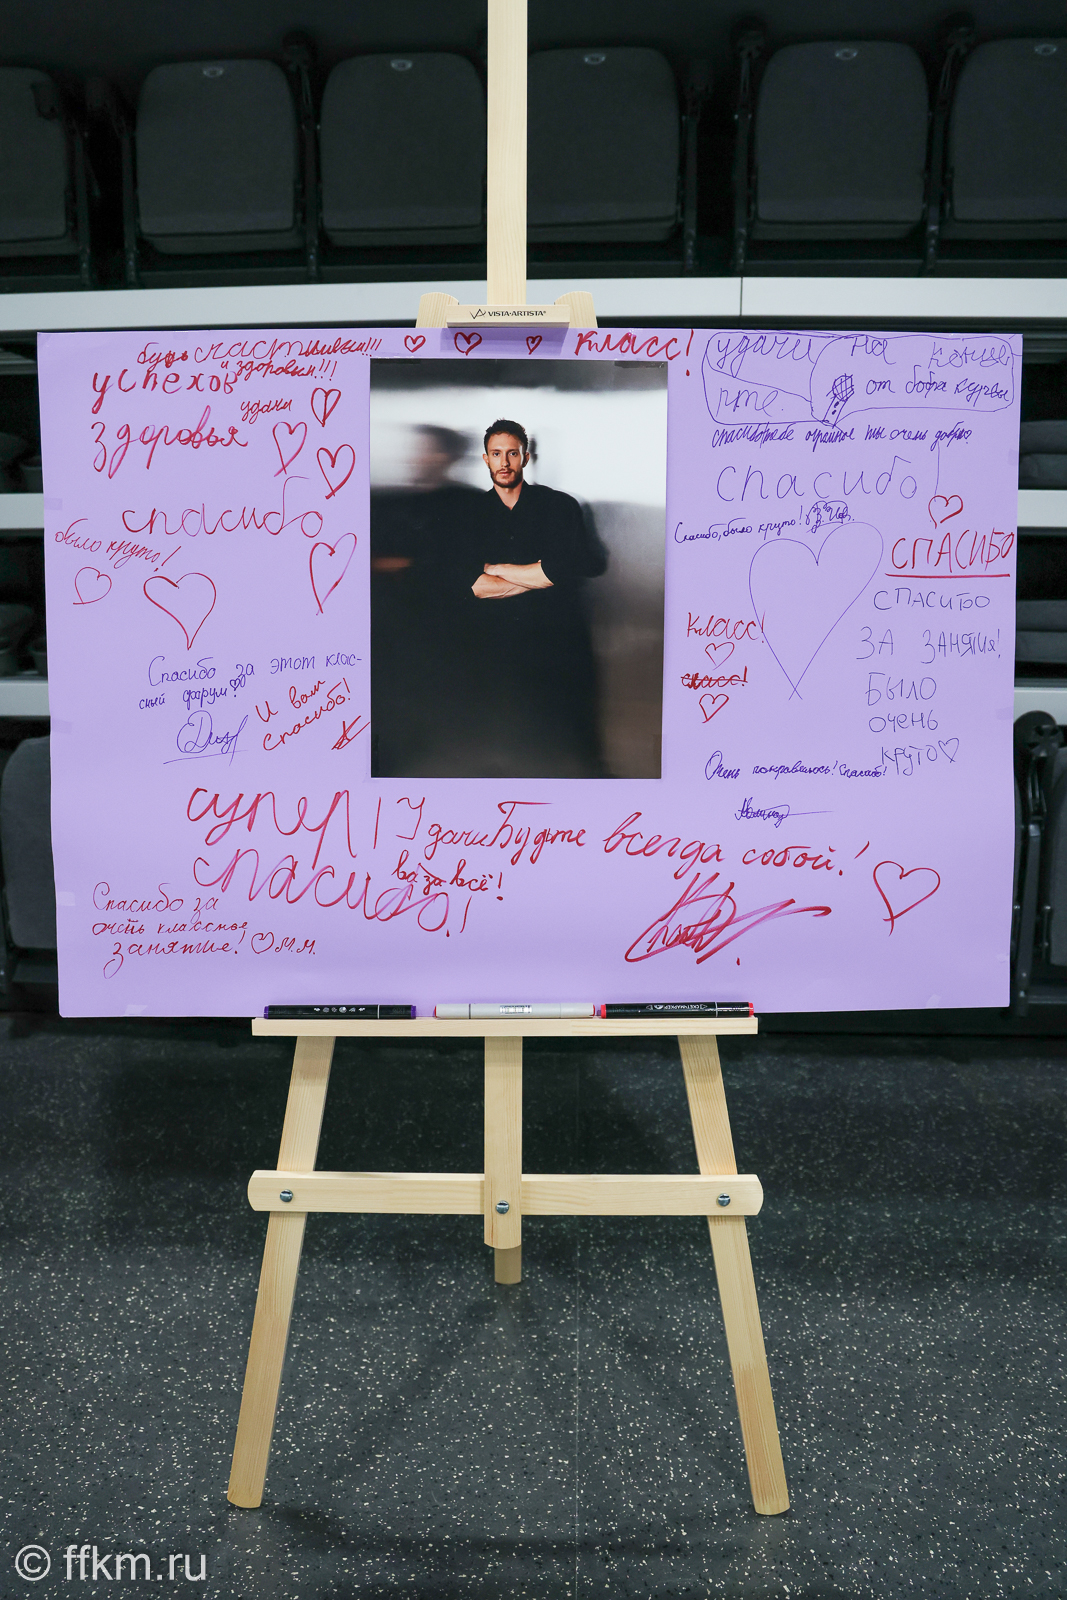 VISTA-ARTISTA®
будь счастливы!!!
и здоровы!!!
успехов
удачи
здоровья
спасибо
было круто!
Спасибо за этот клас-
сный форум
И вам
спасибо!
класс!
удачи на конце
рте.
от бобра курвы
спасибо тебе огромное ты очень добрый
спасибо!
Спасибо, было круто!
СПАСИБО
СПАСИБО
ЗА ЗАНЯТИЯ!
БЫЛО
ОЧЕНЬ
КРУТО
класс!
класс!
Очень понравилось! Спасибо!
супер! Удачи Будьте всегда собой!
спасибо!
за всё!
Спасибо за
очень классное
занятие! М.М.
© ffkm.ru